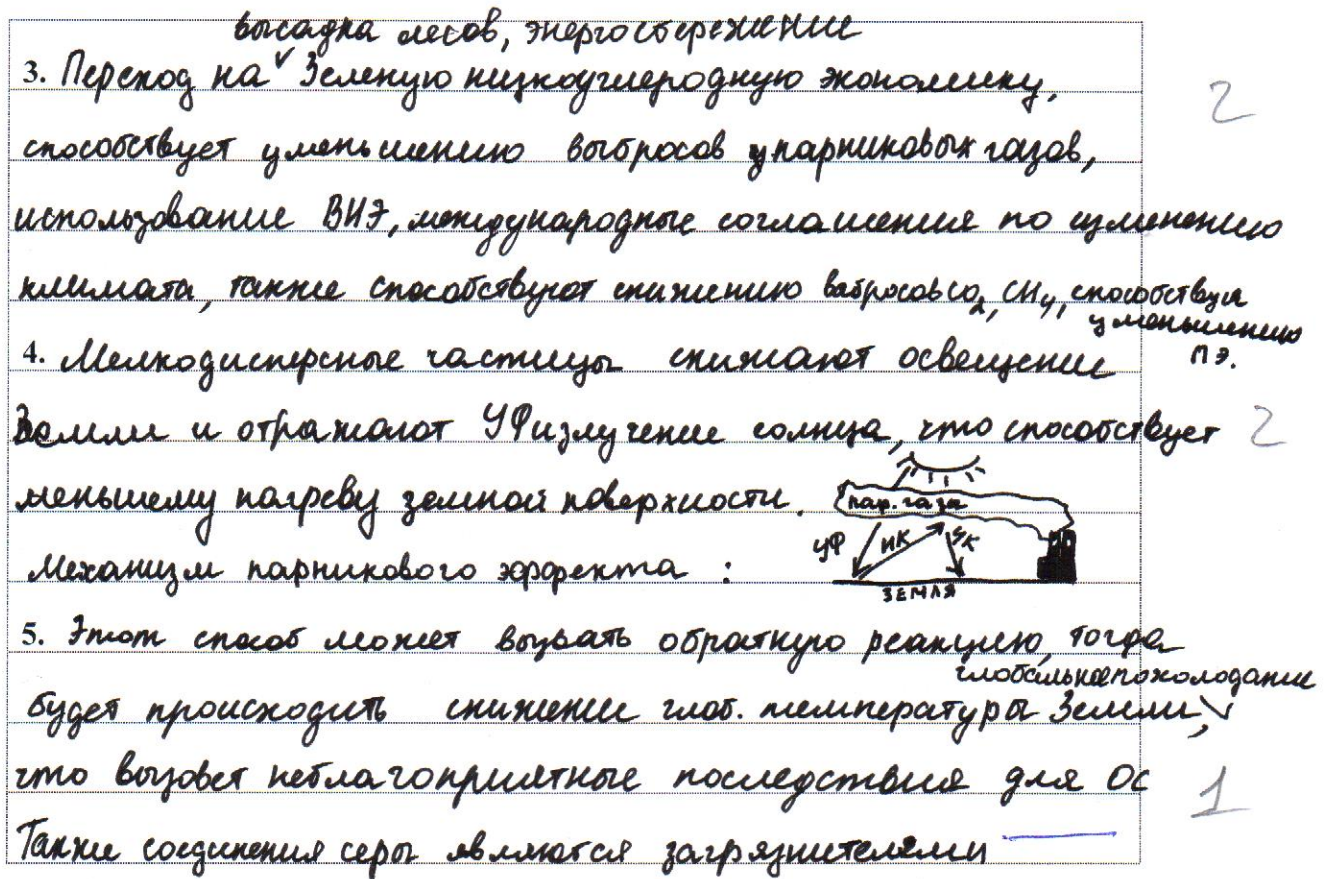 высадка лесов, энергосбережение
3. Переход на ᵛ Зеленую низкоуглеродную экономику, 2
способствует уменьшению выбросов парниковых газов,
использование ВИЭ, международные соглашения по изменению
климата, также способствуют снижению выбросов CO2, CH4, способствуя
уменьшению
ПЭ.
4. Мелкодисперсные частицы снижают освещение
Земли и отражают УФ излучение солнца, что способствует 2
меньшему нагреву земной поверхности.
пар. газа
УФ ИК ИК
Механизм парникового эффекта :
ЗЕМЛЯ
5. Этот способ может вызвать обратную реакцию, тогда
глобальное похолодание
будет происходить снижение глоб. температуры Земли, ᵛ
что вызовет неблагоприятные последствия для ОС 1
Также соединения серы являются загрязнителями